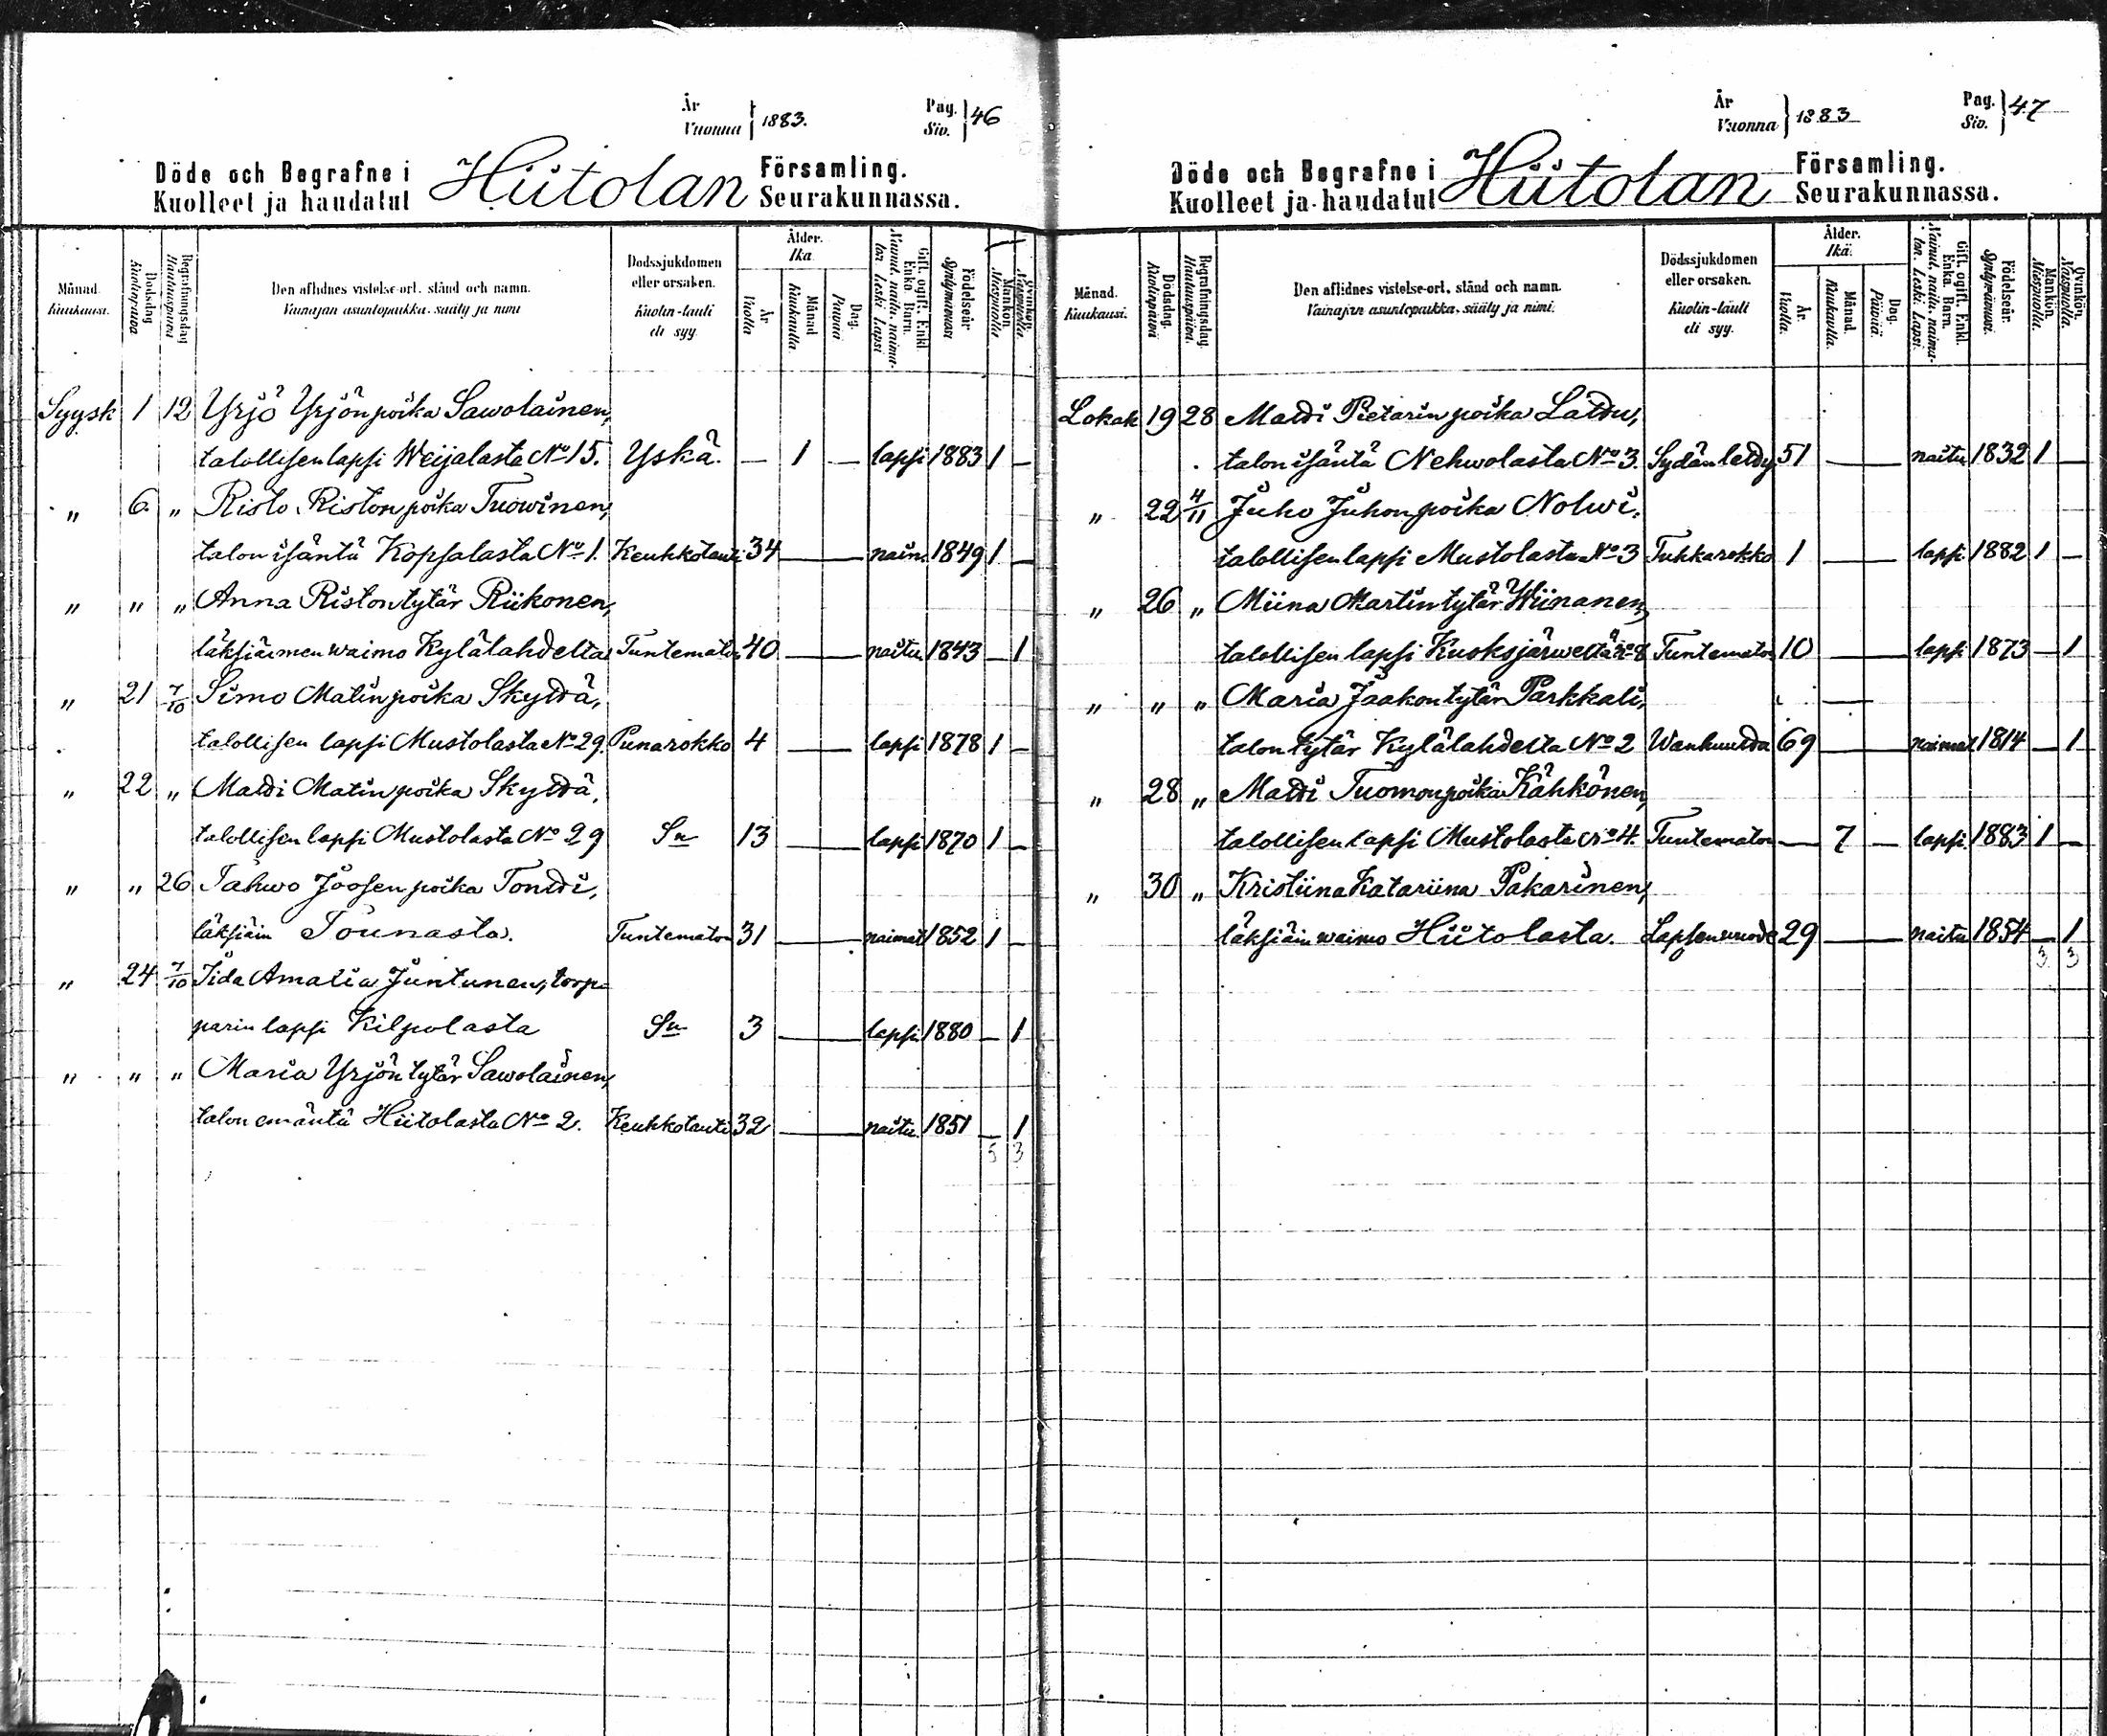 År
Vuonna } 1883.
Pag.
Siv. } 46
Döde och Begrafne i Hiitolan Församling.
Kuolleet ja haudatut Seurakunnassa.
Månad. Kuukausi.
Dödsdag Kuolinpäivä
Begrafningsdag Hautauspäivä
Den aflidnes vistelse-ort, stånd och namn.
Vainajan asuntopaikka, sääty ja nimi
Dödssjukdomen eller orsaken.
Kuolin-tauti eli syy.
Ålder. Ikä
År Vuotta
Månad Kuukautta.
Dag. Päivää
Gift, ogift. Enkl. Enka. Barn.
Nainut, naitu, naimaton. Leski. Lapsi
Födelseår Syntymävuosi
Mankön. Miespuolia
Qvinkön. Naispuolia.
Syysk 1 12 Yrjö Yrjönpoika Sawolainen,
talollisen lapsi Weijalasta No 15. Yskä. — 1 — lapsi 1883 1 —
" 6. " Risto Ristonpoika Tuowinen,
talon isäntä Kopsalasta No 1. Keuhkotauti 34 — nain. 1849 1 —
" " " Anna Ristontytär Riikonen,
läksiäimen waimo Kylälahdelta Tuntematon 40 — naitu 1843 — 1
" 21 7/10 Simo Matinpoika Skyttä,
talollisen lapsi Mustolasta No 29. Punarokko 4 — lapsi 1878 1 —
" 22 " Matti Matinpoika Skyttä,
talollisen lapsi Mustolasta No 29 Sn 13 — lapsi 1870 1 —
" " 26 Tahwo Joosenpoika Tontti,
läksiäin Tounasta. Tuntematon 31 — naimat 1852 1 —
" 24 7/10 Iida Amalia Juntunen, torp-
parin lapsi Kilpolasta Sn 3 — lapsi 1880 — 1
" " " Maria Yrjöntytär Sawolainen,
talon emäntä Hiitolasta No 2. Keuhkotauti 32 — naitu 1851 — 1
5 3
År
Vuonna } 1883
Pag.
Siv. } 47
Döde och Begrafne i Hiitolan Församling.
Kuolleet ja haudatut Seurakunnassa.
Månad. Kuukausi.
Dödsdag. Kuolinpäivä
Begrafningsdag. Hautauspäivä.
Den aflidnes vistelse-ort, stånd och namn.
Vainajan asuntopaikka, sääty ja nimi.
Dödssjukdomen eller orsaken.
Kuolin-tauti eli syy.
Ålder. Ikä.
År. Vuotta.
Månad. Kuukautta.
Dag. Päivää.
Gift, ogift. Enkl. Enka. Barn.
Nainut, naitu, naimaton. Leski. Lapsi.
Födelseår. Syntymävuosi.
Mankön. Miespuolia.
Qvinkön. Naispuolia.
Lokak 19 28 Matti Pietarinpoika Lattu,
talon isäntä Nehwolasta No 3. Sydänletty 51 — naitu 1832 1 —
" 22 4/11 Juho Juhonpoika Nolwi,
talollisen lapsi Mustolasta No 3 Tuhkarokko 1 — lapsi 1882 1 —
" 26 " Miina Martintytär Wiinanen,
talollisen lapsi Kuoksjärweltä No 8 Tuntematon 10 — lapsi 1873 — 1
" " " Maria Jaakontytär Parkkali,
talon tytär Kylälahdelta No 2 Wanhuutta 69 — naimat 1814 — 1
" 28 " Matti Tuomonpoika Kähkönen,
talollisen lapsi Mustolasta No 4. Tuntematon — 7 — lapsi 1883 1 —
" 30 " Kristiina Katariina Pakarinen,
läksiäin waimo Hiitolasta. Lapsenwuode 29 — naitu 1854 — 1
3 3